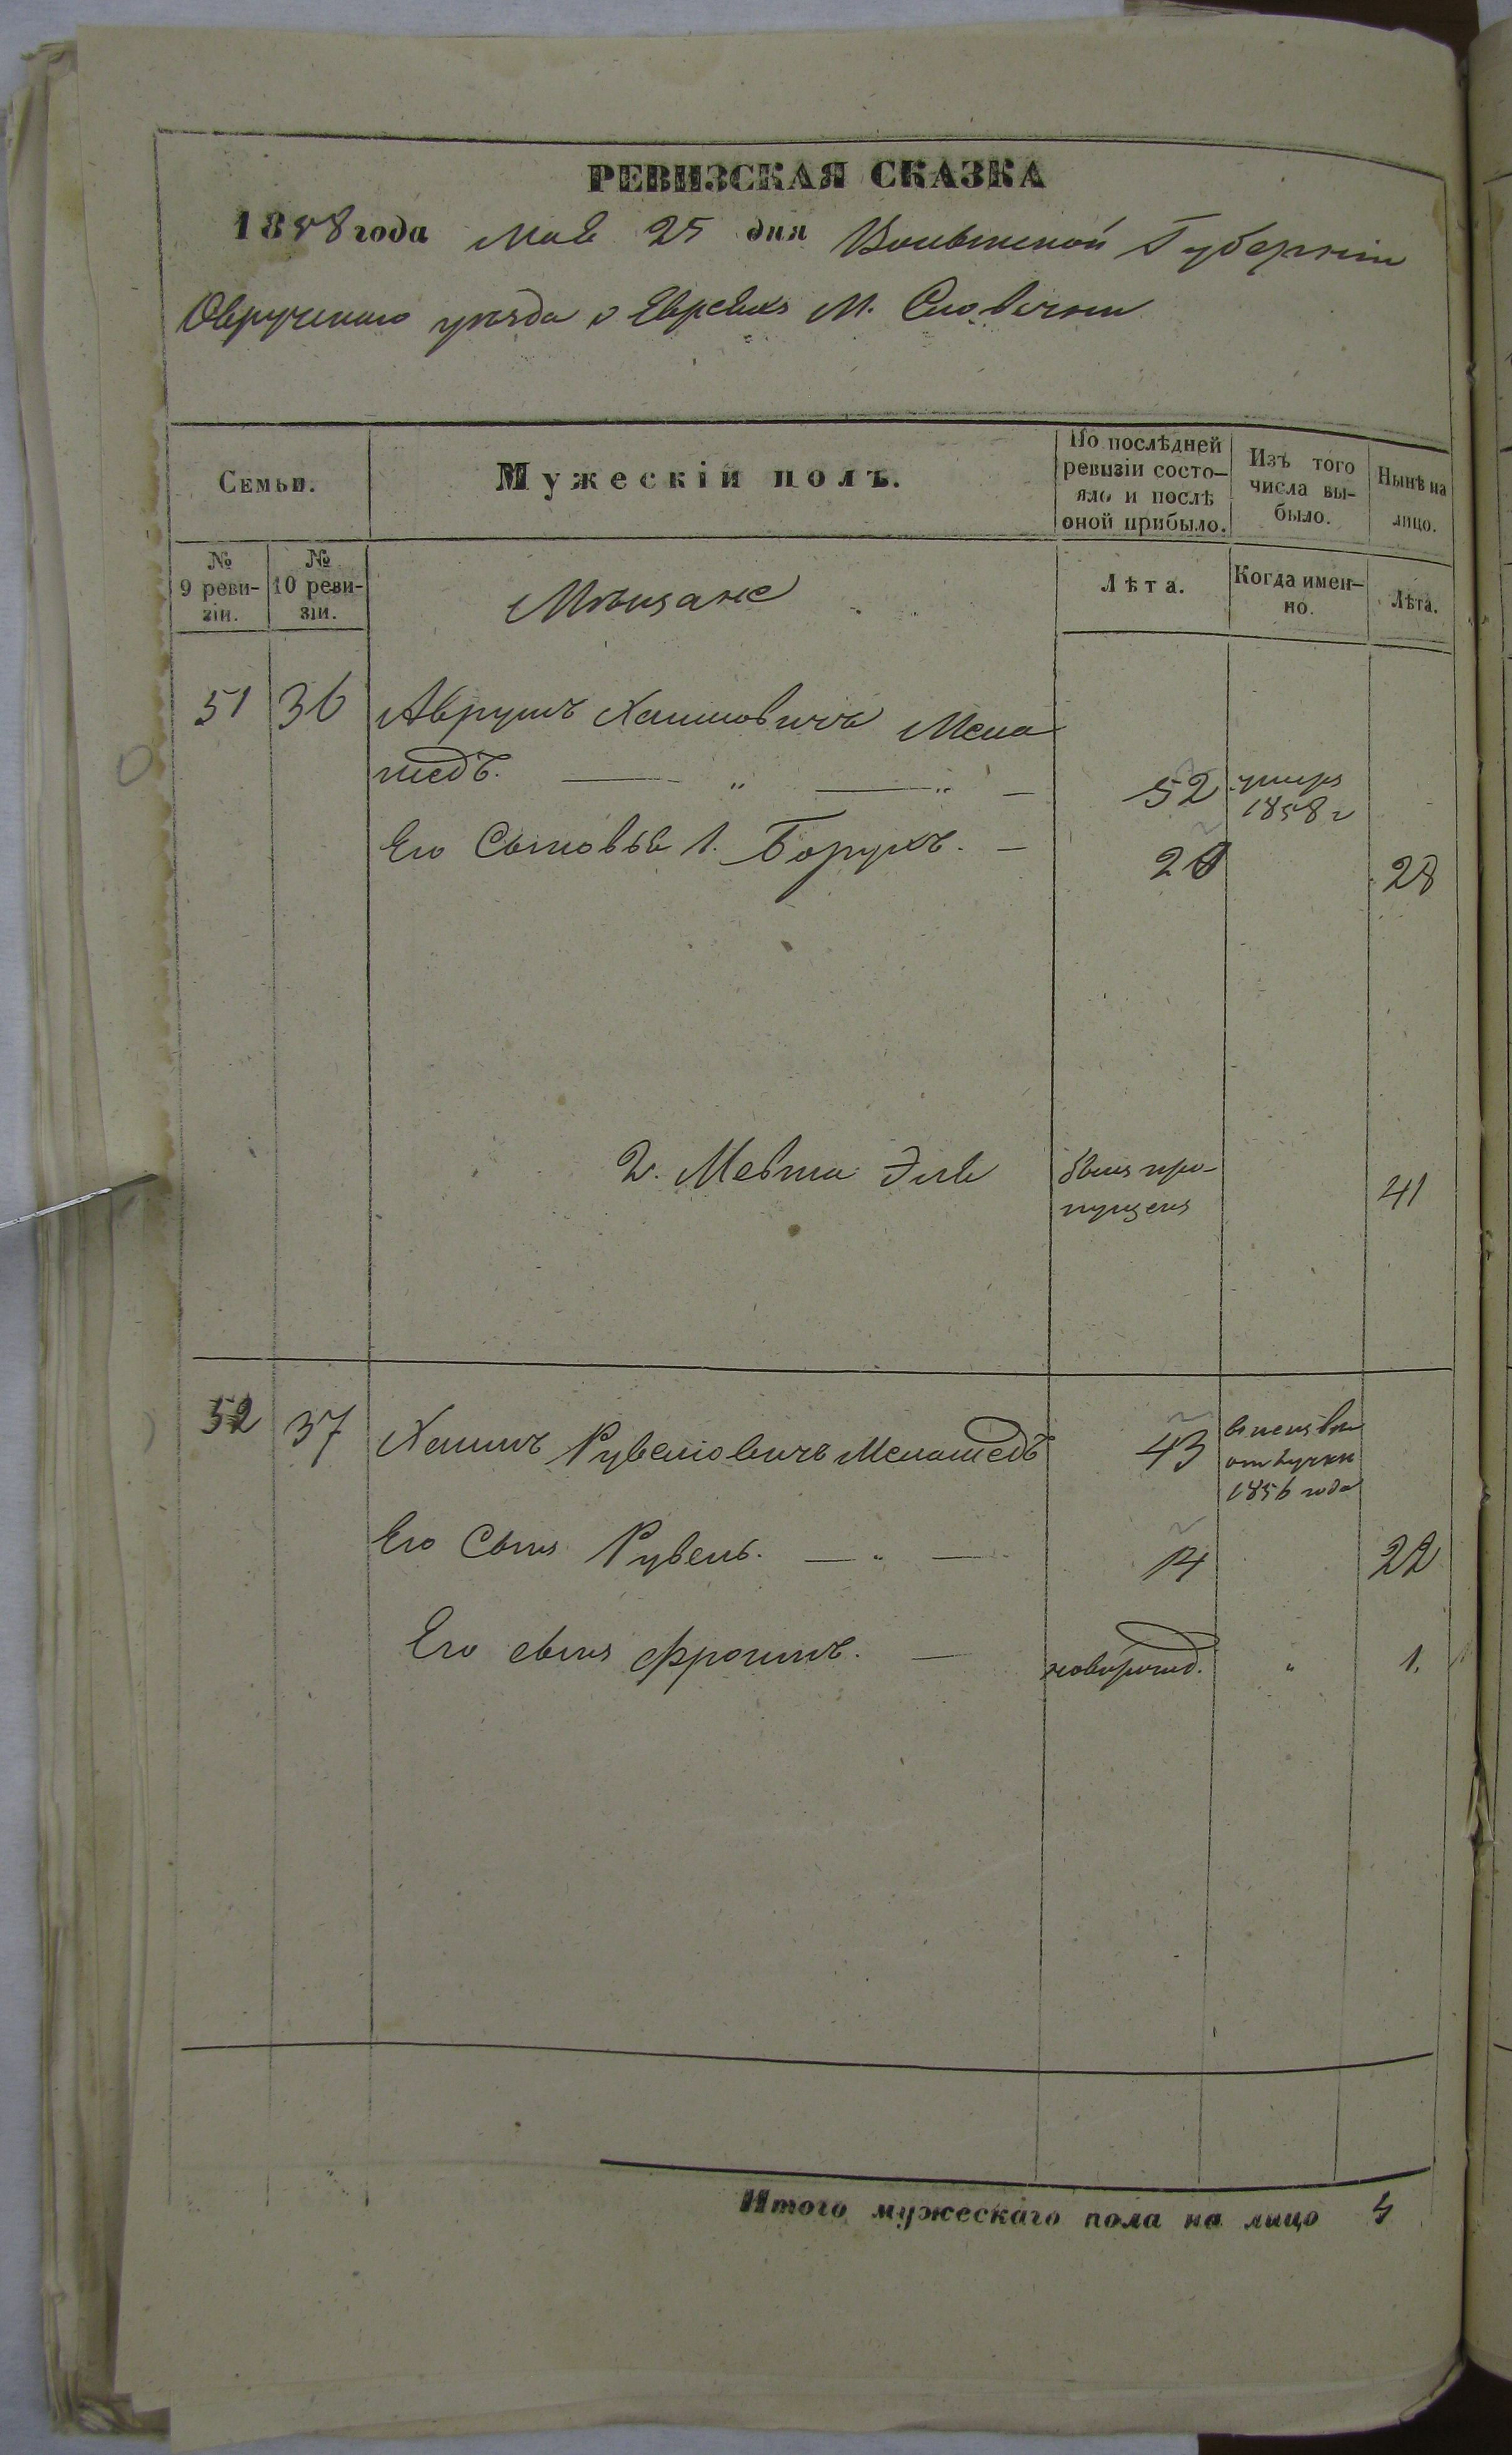 РЕВИЗСКАЯ СКАЗКА
1858 года Мая 25 дня Волынской Губерніи
Овручскаго уѣзда о Евреяхъ М. Словечны
Семьи.
Мужескій полъ.
По послѣдней
ревизіи состо-
яло и послѣ
оной прибыло.
Изъ того
числа вы-
было.
Нынѣ на
лицо.
№
9 реви-
зіи.
№
10 реви-
зіи.
Мѣщане
Лѣта.
Когда имен-
но.
Лѣта.
51 36 Аврумъ Хаимовичъ Мела
медъ. 52 умеръ
1858 г
Его Сыновья 1. Борухъ. 20 28
2. Мевша Эля былъ про- 41
пущенъ
52 37 Хаимъ Рувеновичъ Меламедъ 43
отлучки
1856 года
Его Сынъ Рувенъ. 14 22
Его сынъ Фроимъ. новорожд. „ 1.
Итого мужескаго пола на лицо 4